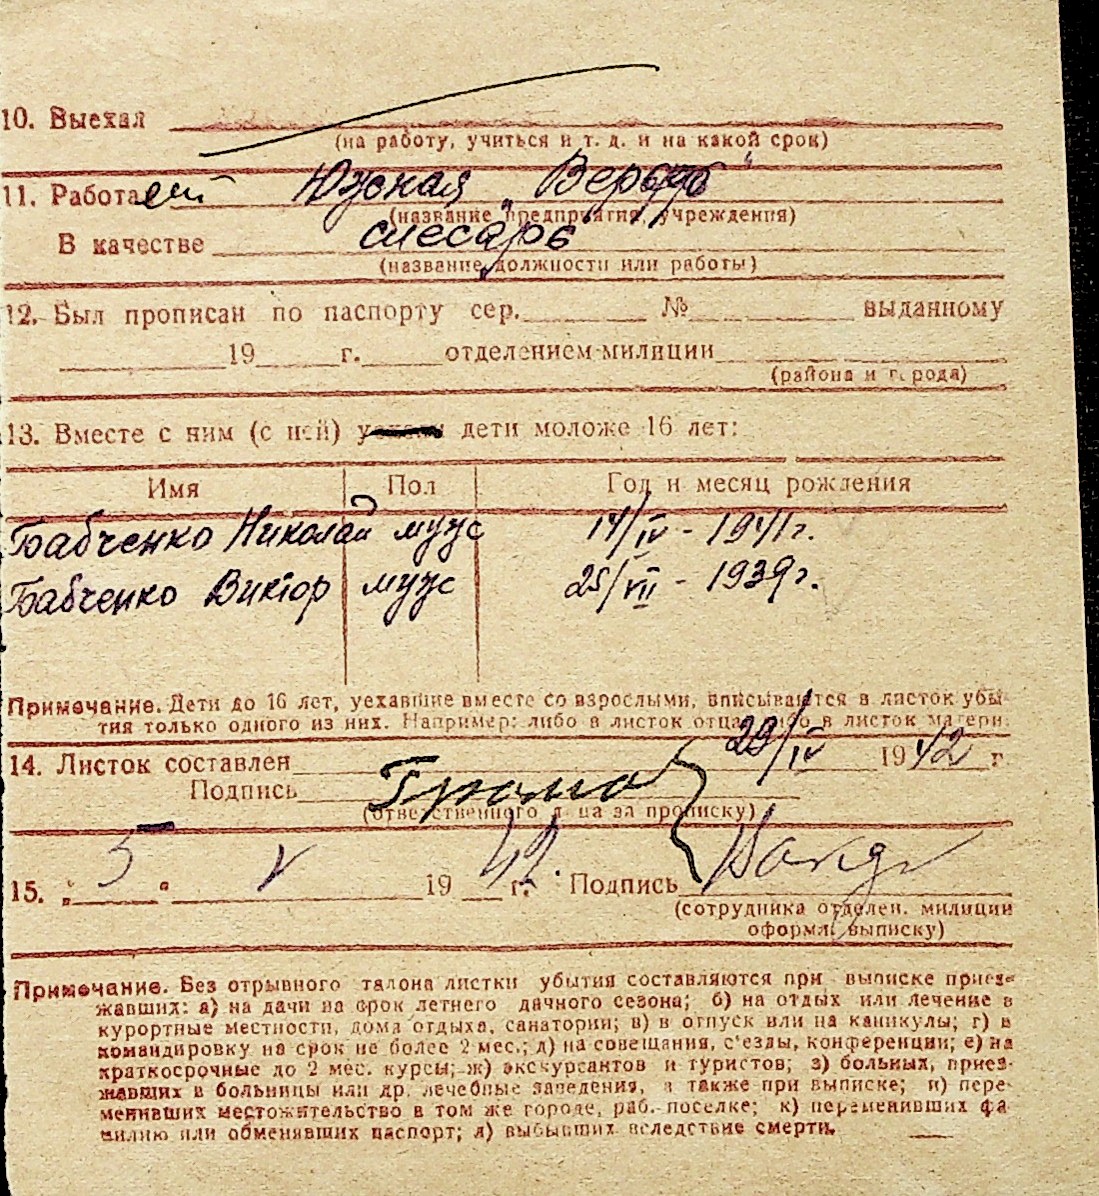 10. Выехал
(на работу, учиться и т. д. и на какой срок)
11. Работает Южная Верфь"
(название предприятия, учреждения)
В качестве слесарь
(название должности или работы)
12. Был прописан по паспорту сер. № выданному
19 г. отделением милиции
(района и города)
13. Вместе с ним (с ней) дети моложе 16 лет:
Имя Пол Год и месяц рождения
Бабченко Николай муж 14/IV - 1941г.
Бабченко Виктор муж 25/VII - 1939г.
Примечание. Дети до 16 лет, уехавшие вместе со взрослыми, вписываются в листок убы-
тия только одного из них. Например: либо в листок отца, либо в листок матери.
14. Листок составлен 29/IV 1942 г.
Подпись
(ответственного лица за прописку)
15. „5" V 1942 г. Подпись
(сотрудника отделен. милиции
оформл. выписку)
Примечание. Без отрывного талона листки убытия составляются при выписке приез-
жавших: а) на дачи на срок летнего дачного сезона; б) на отдых или лечение в
курортные местности, дома отдыха, санатории; в) в отпуск или на каникулы; г) в
командировку на срок не более 2 мес.; д) на совещания, с'езды, конференции; е) на
краткосрочные до 2 мес. курсы; ж) экскурсантов и туристов; з) больных, приез-
жавших в больницы или др. лечебные заведения, а также при выписке; и) пере-
менивших местожительство в том же городе, раб. поселке; к) переменивших фа
милию или обменявших паспорт; л) выбывших вследствие смерти.